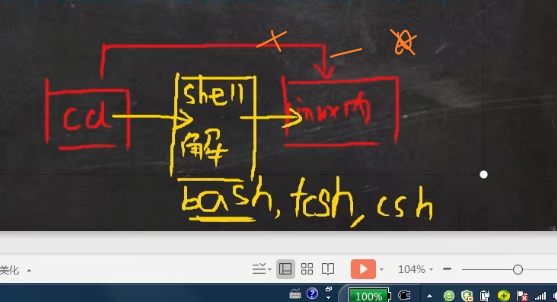 shell
cd
linux内
解
bash, tcsh, csh
美化
104%
100%